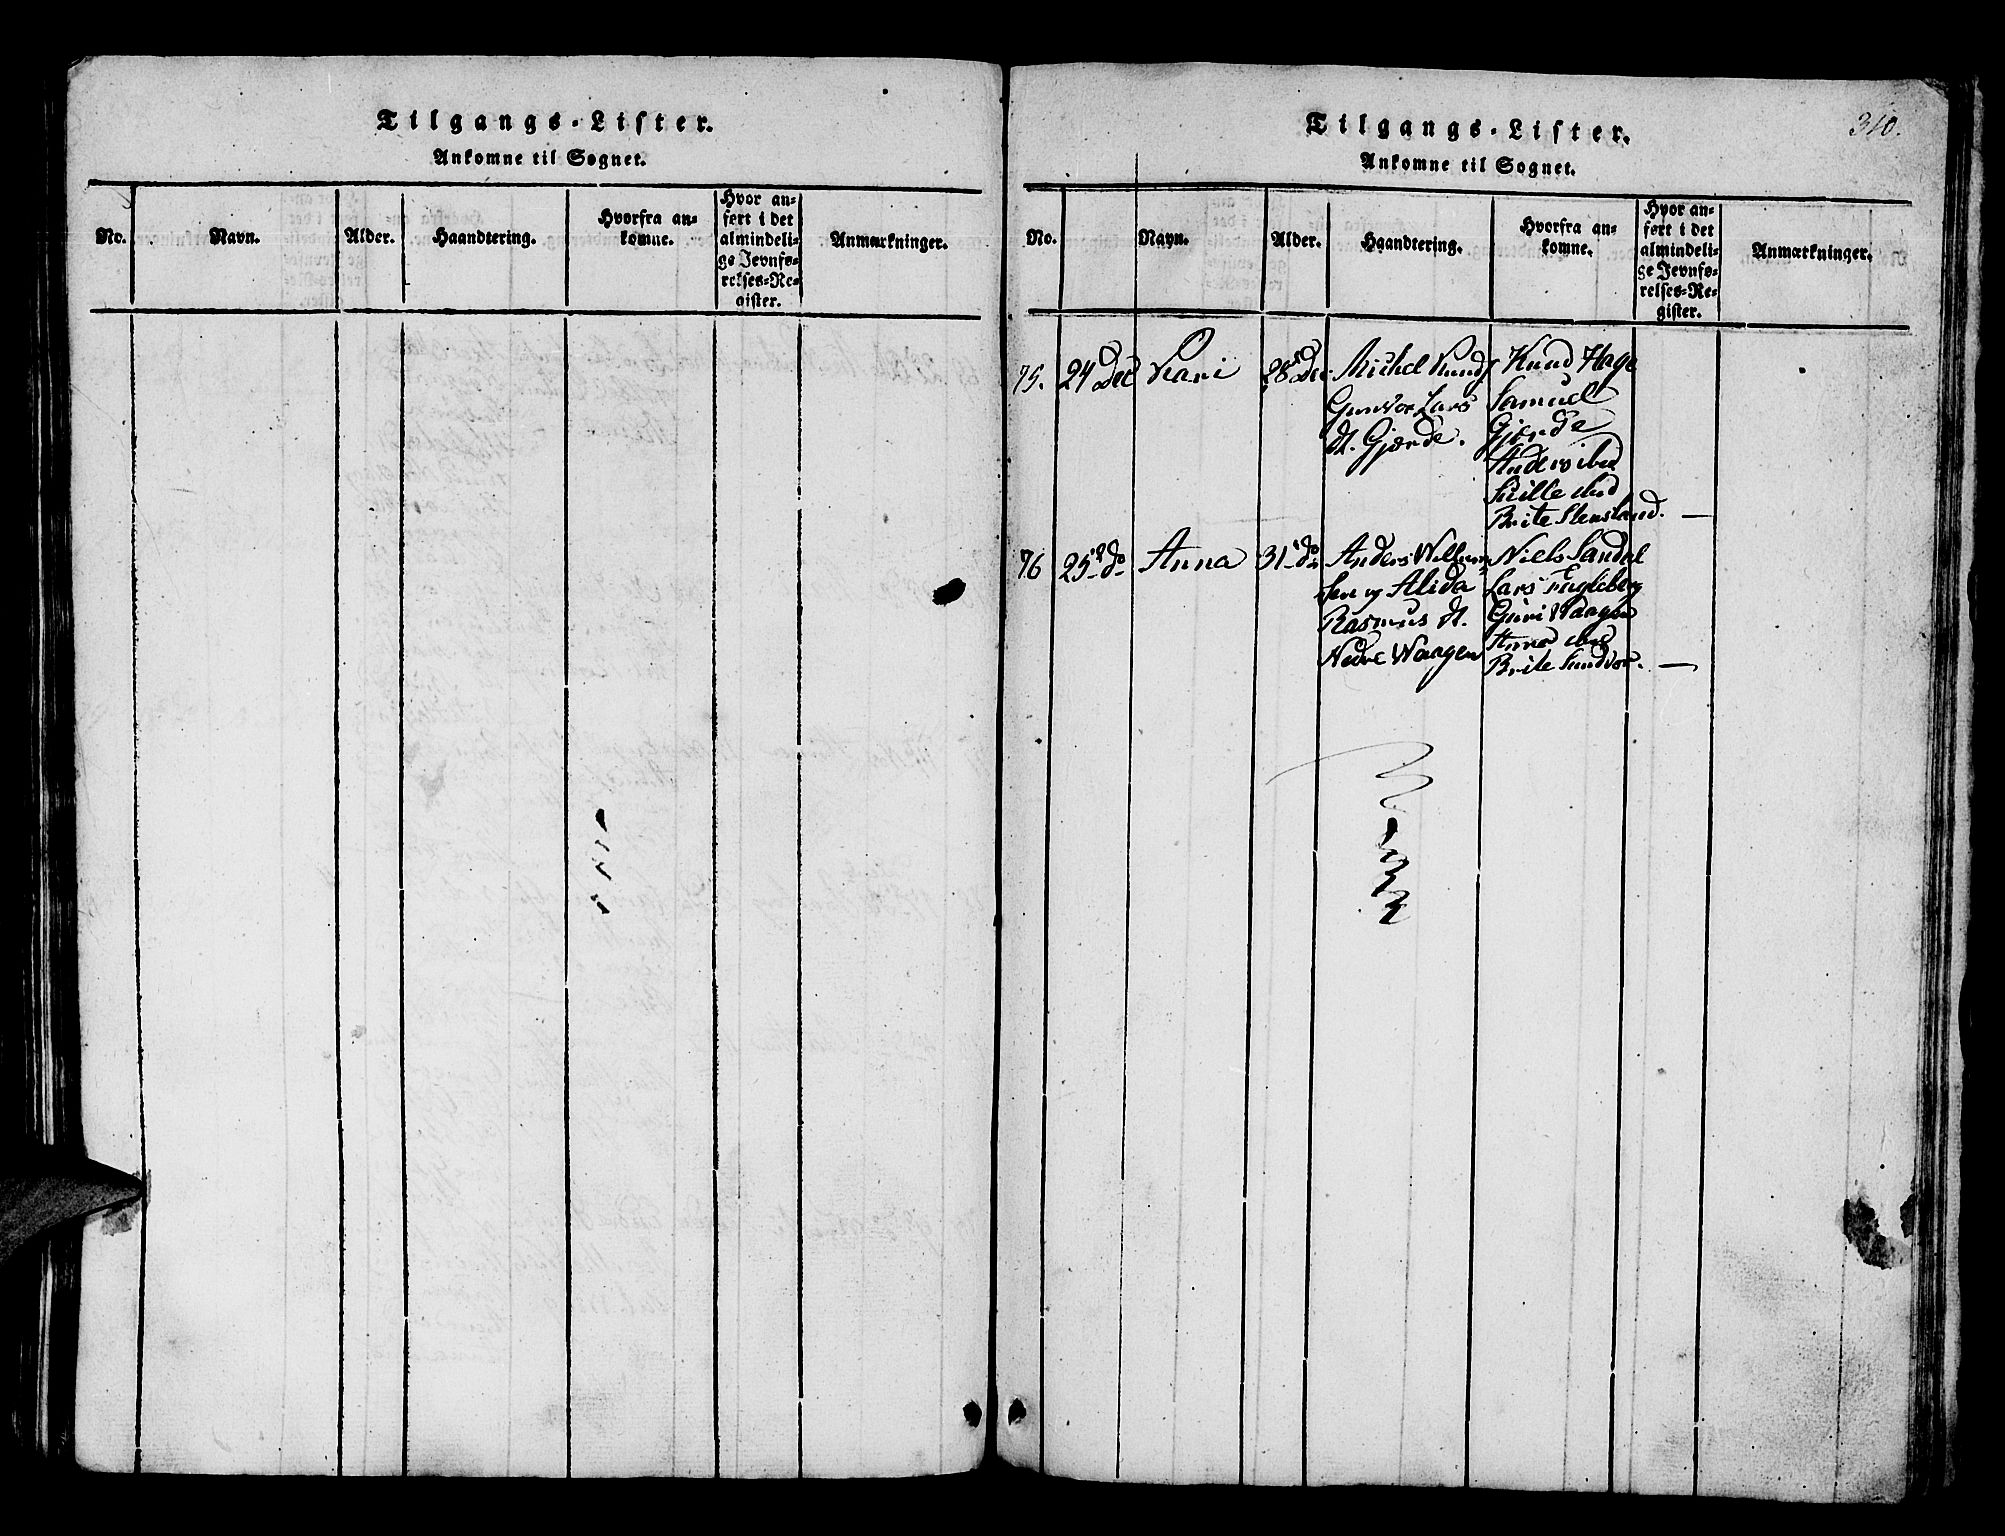 Tilgangs-Lister.
Ankomne til Sognet.
No.
Navn.
Alder.
Haandtering.
Hvorfra an-
komne.
Hvor an-
ført i det
almindeli-
ge Jevnfø-
relses-Re-
gister.
Anmærkninger.
310.
Tilgangs-Lister.
Ankomne til Sognet.
No.
Navn.
Alder.
Haandtering.
Hvorfra an-
komne.
Hvor an-
ført i det
almindeli-
ge Jevnfø-
relses-Re-
gister.
Anmærkninger.
75. 24 Dec Kari 28 Dec
Michel Knuds
Gunvor Lars
d. Gjærde.
Knud Hage
Samuel
Gjærde
Anders ibid
ibid
Brite Stensland. —
76 25 do Anna 31 do
Anders Willum
sen og Alida
Rasmus d.
Nedre Waagen
Niels Sandal
Lars
Guri Waagen
Anna ibid
Brite Sundvor. —